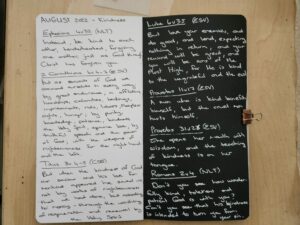 AUGUST 2022 - Kindness
Ephesians 4v32 (NLT)
Instead, be kind to each
other, tenderhearted, forgiving
one another, just as God through
Christ has forgiven you.
2 Corinthians 6v4-7 (ESV)
but as servants of God we
commend ourselves in every way:
by great endurance, in afflictions,
hardships, calamities, beatings,
imprisonments, riots, labors, sleepless
nights, hunger; by purity,
knowledge, patience, kindness,
the Holy Spirit, genuine love; by
truthful speech, and the power
of God; with the weapons of
righteousness for the right hand
and for the left;
Titus 3v4-5 (CSB)
But when the kindness of God
our Savior and his love for
mankind appeared, he saved us
not by works of righteousness
that we had done, but according
to his mercy - through the washing
of regeneration and renewal by
the Holy Spirit.
Luke 6v35 (ESV)
But love your enemies, and
do good, and lend, expecting
nothing in return, and your
reward will be great, and
you will be sons of the
Most High, for he is kind
to the ungrateful and the evil.
Proverbs 11v17 (ESV)
A man who is kind benefits
himself, but the cruel man
hurts himself.
Proverbs 31v26 (ESV)
She opens her mouth with
wisdom, and the teaching
of kindness is on her
tongue.
Romans 2v4 (NLT)
Don't you see how wonder-
fully kind, tolerant and
patient God is with you?
Don't you see that his kindness
is intended to turn you from
your sin.